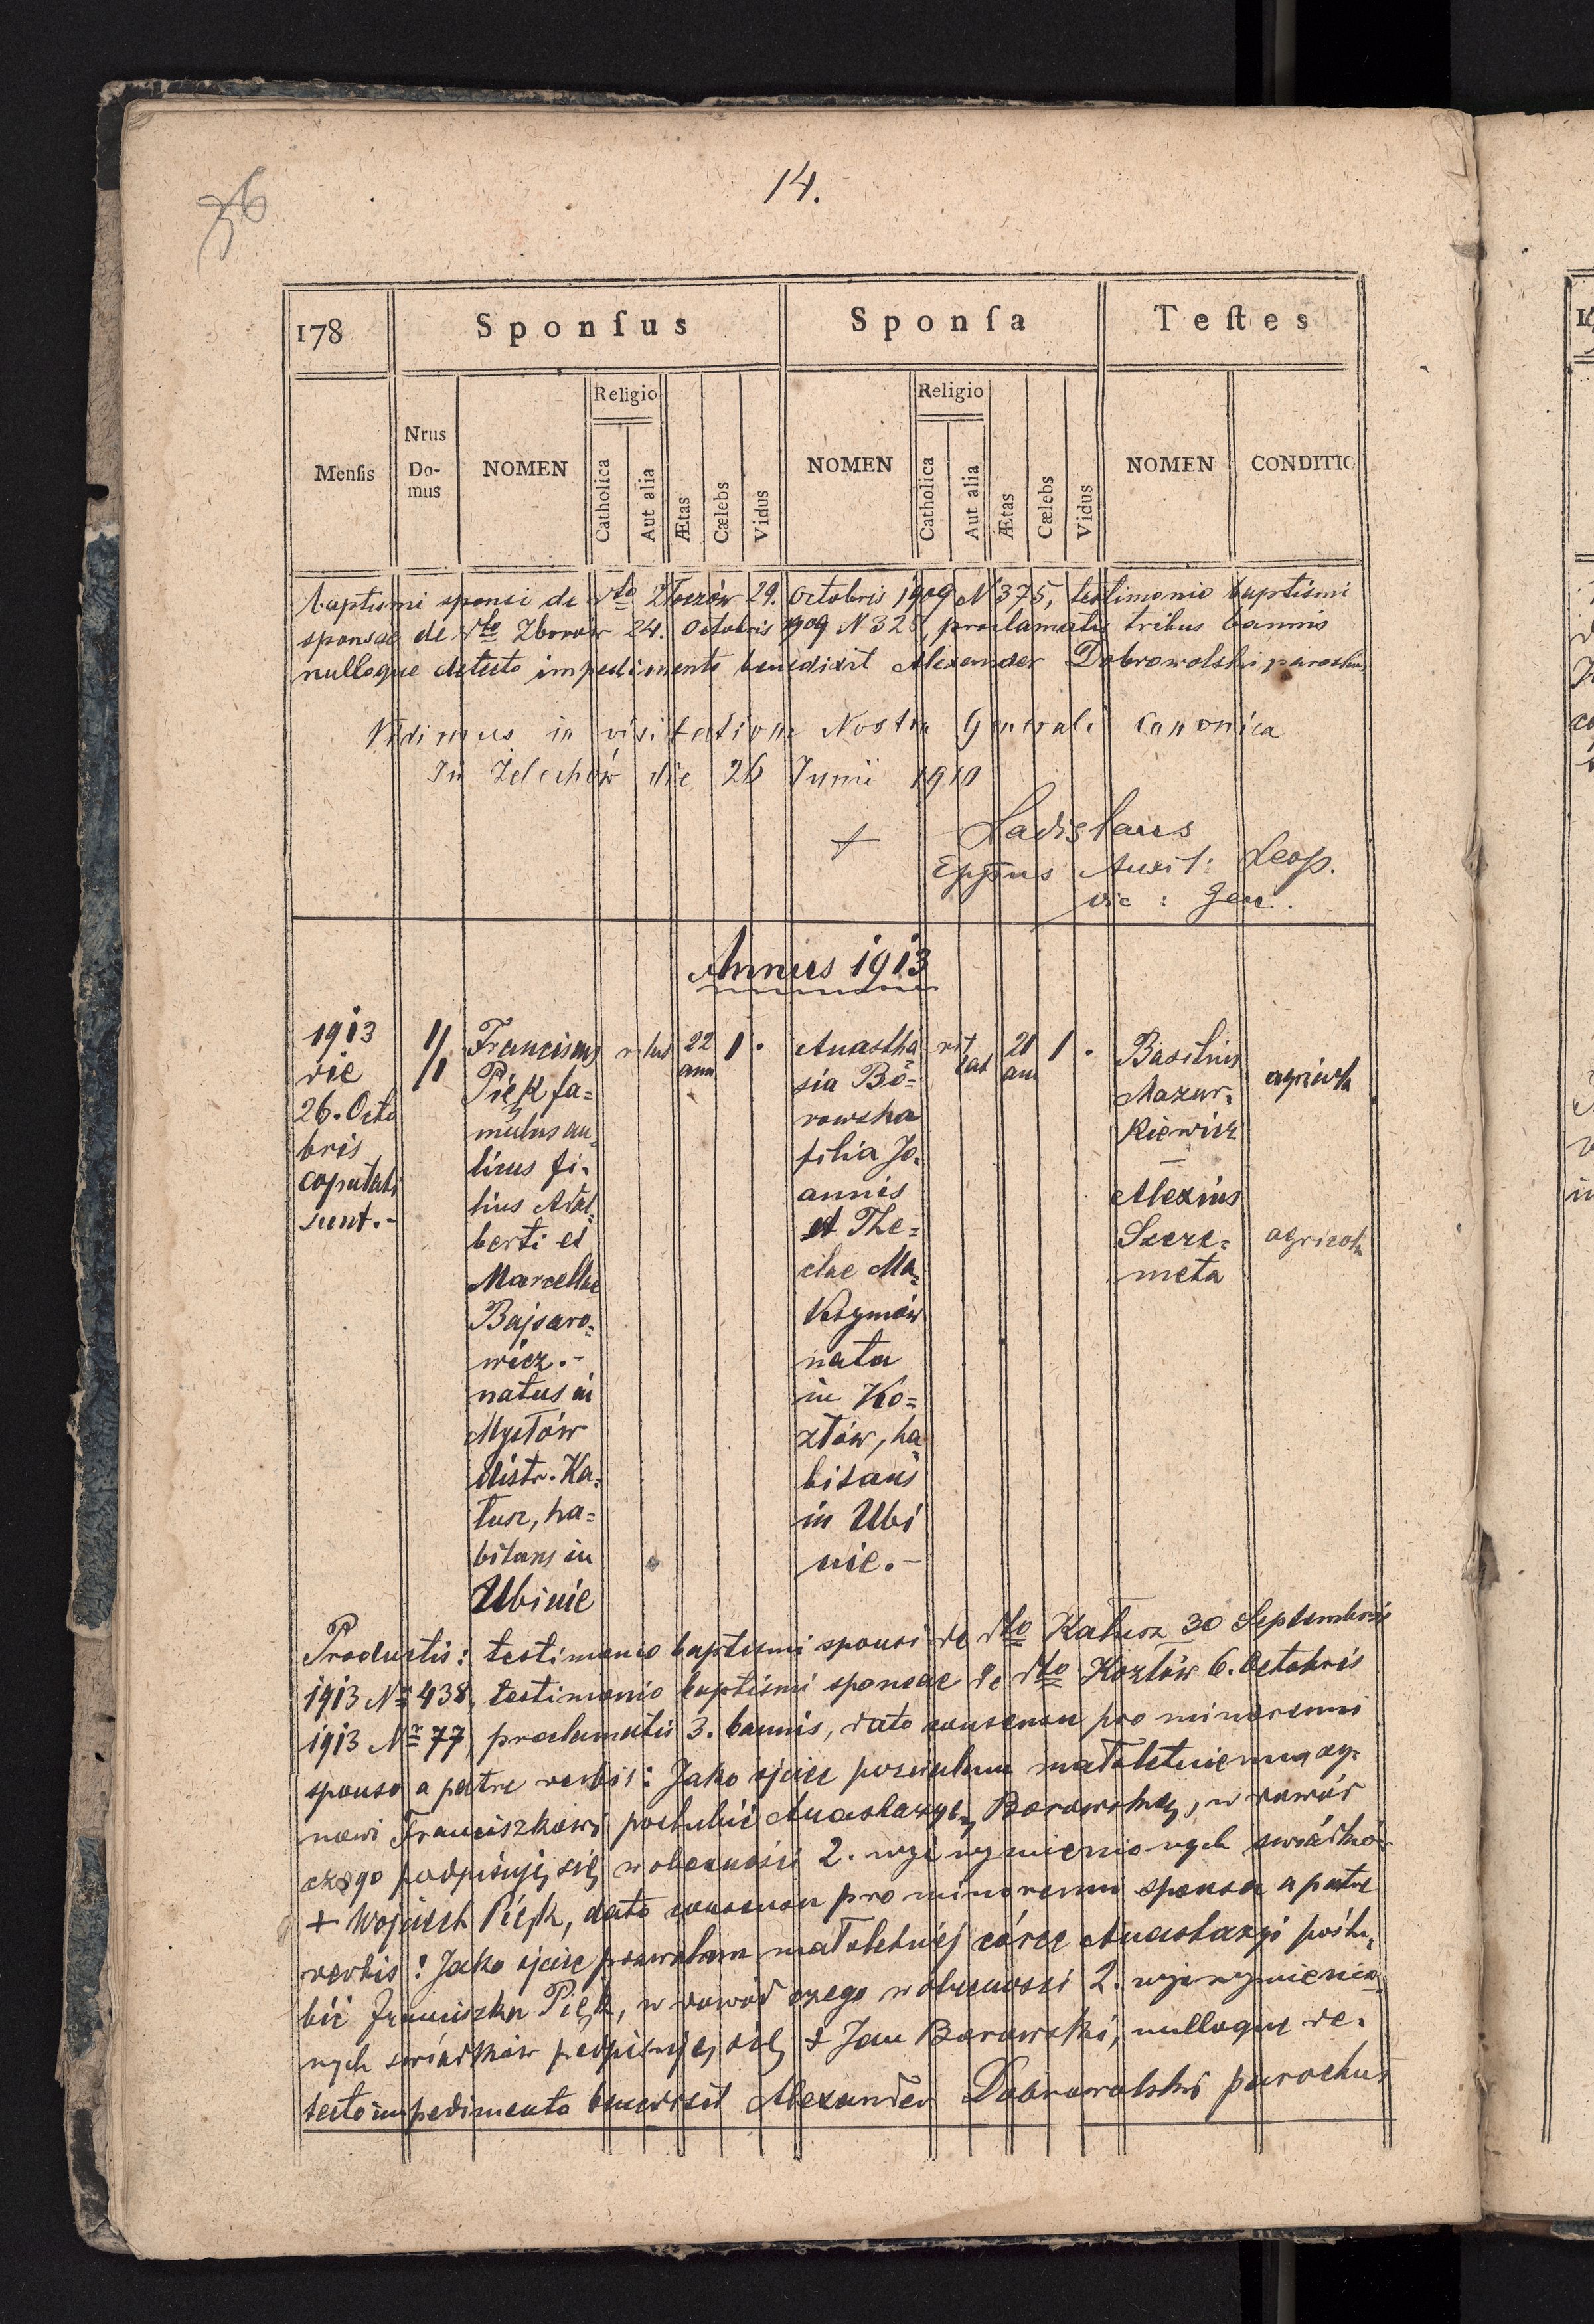 36
14.
178 Sponſus Sponſa Teſtes
Menſis Nrus Do-mus NOMEN Religio Catholica Aut alia Ætas Cælebs Vidus NOMEN Religio Catholica Aut alia Ætas Cælebs Vidus NOMEN CONDITIO
baptismi sponsi de dto Złoczów 29. Octobris 1909 N 375, testimonio baptismi
sponsae de dto Zborów 24. Octobris 1909 N 325, proclamatis tribus bannis
nulloque detecto impedimento benedixit Alexander Dobrowolski parochus
Vidimus in visitatione Nostra Generali Canonica
In Żelechów die 26 Junii 1910
+ Ladislaus
Eppus Auxil: Leop.
vic: Gen.
Annus 1913
1913
die
26. Octo
bris
copulati
sunt.-
Franciscus
Pięk fa=
mulus au=
licus fi-
lius Adal=
berti et
Marcellae
Bajsaro=
wicz.-
natus in
Mysłów
distr. Ka=
łusz, ha=
bitans in
Ubinie
22
ann
1
Anastha=
sia Bo=
rowska
filia Jo=
annis
et The=
clae Ma=
ksymów
nata
in Ko=
złów, ha=
bitans
in Ubi
nie.-
rit
lat
21
an
1
Basilius
Mazur=
kiewicz
agricola
Alexius
Szere=
meta
agricola
Productis: testimonio baptismi sponsi de dto Kałusz 30 Septembris
1913 Nr 438, testimonio baptismi sponsae de dto Kozłów 6. Octobris
1913 Nr 77, proclamatis 3. bannis, dato consensu pro minorenni
sponso a patre verbis: Jako ojciec pozwalam małoletniemu sy=
nowi Franciszkowi poślubić Anastazyę Borowską, w dowód
czego podpisuję się w obecności 2. wyż wymienionych świadków
+ Wojciech Pięk, dato consensu pro minorenni sponsa a patre
verbis: Jako ojciec pozwalam małoletniej córce Anastazyi poślu=
bić Franciszka Pięk, w dowód czego w obecności 2. wyż wymienio=
nych świadków podpisuję się + Jan Borowski, nulloque de=
tecto impedimento benedixit Alexander Dobrowolski parochus